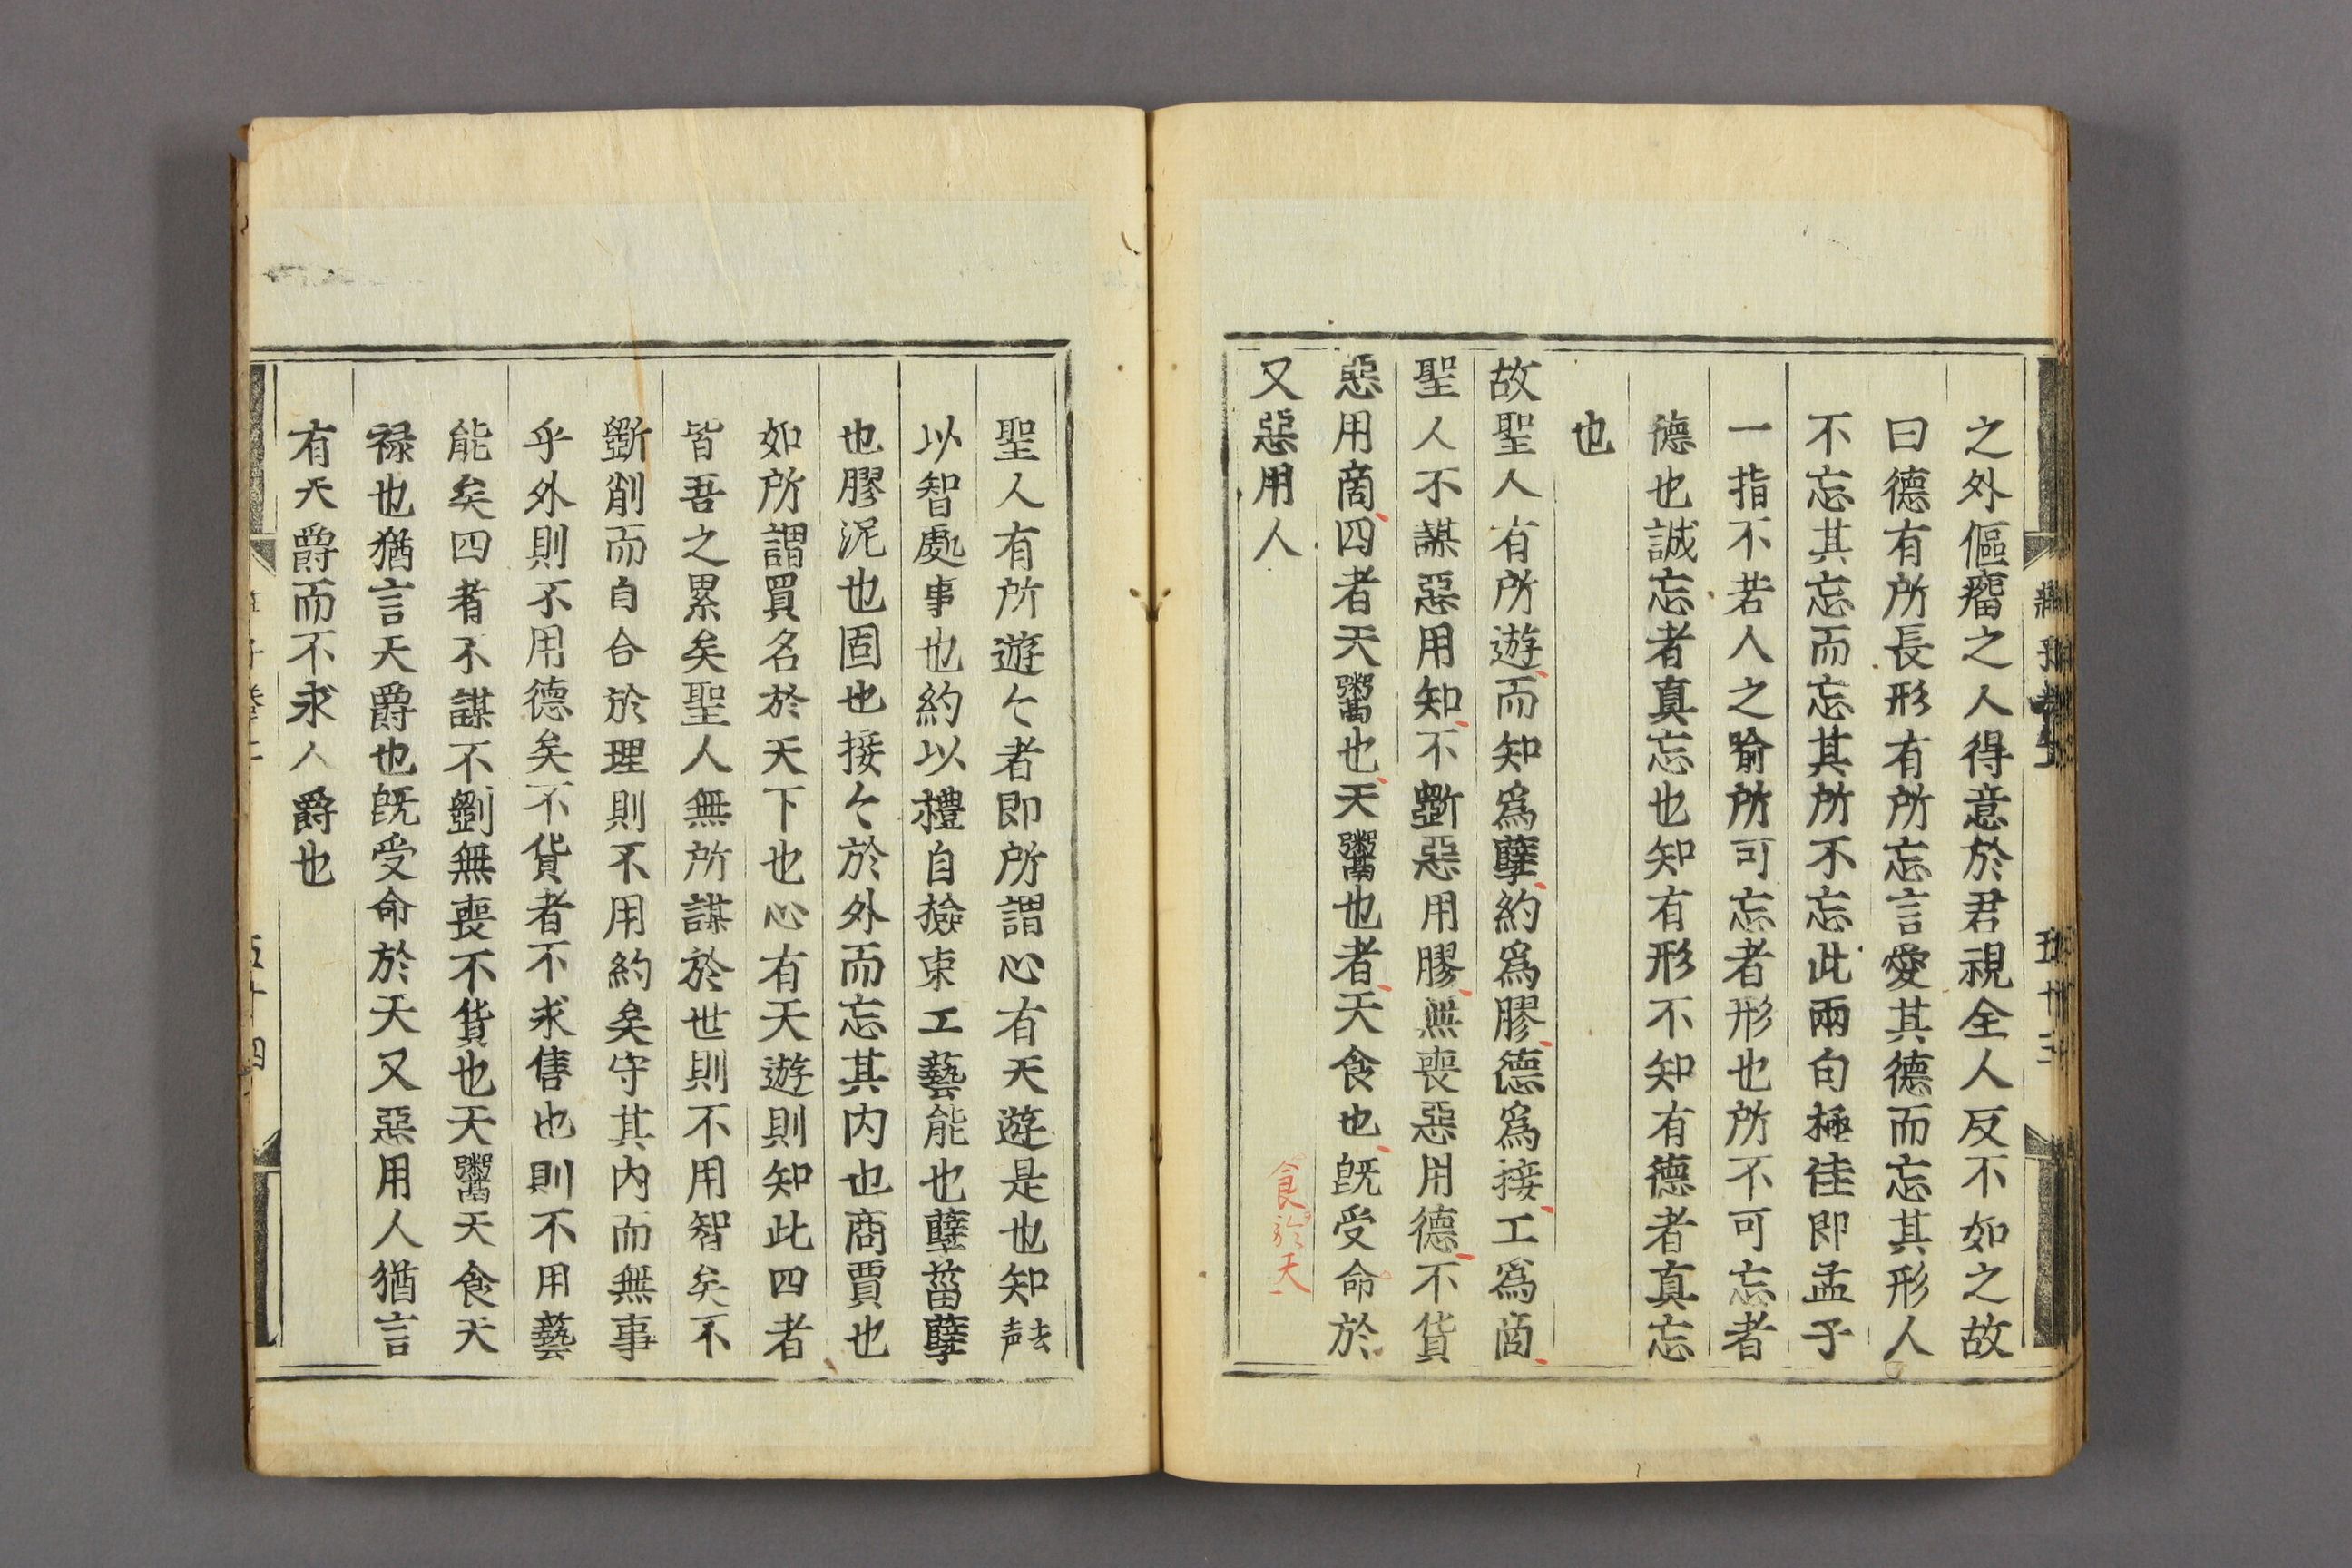 之外傴癅之人得意於君視全人反不如之故
曰德有所長形有所忘言愛其德而忘其形人
不忘其忘而忘其所不忘此兩句極佳即孟子
一指不若人之喻所可忘者形也所不可忘者
德也誠忘者真忘也知有形不知有德者真忘
也
故聖人有所遊而知爲孽約爲膠德爲接工爲商
聖人不謀惡用知不斲惡用膠無喪惡用德不貨
惡用商四者天鬻也天鬻也者天食也既受命於
又惡用人
食於天
聖人有所遊〻者即所謂心有天遊是也知去声
以智處事也約以禮自撿束工藝能也孽菑孽
也膠泥也固也接〻於外而忘其内也商賈也
如所謂買名於天下也心有天遊則知此四者
皆吾之累矣聖人無所謀於世則不用智矣不
斲削而自合於理則不用約矣守其内而無事
乎外則不用德矣不貨者不求售也則不用藝
能矣四者不謀不劉無喪不貨也天鬻天食天
禄也猶言天爵也既受命於天又惡用人猶言
有天爵而不求人爵也
五十四